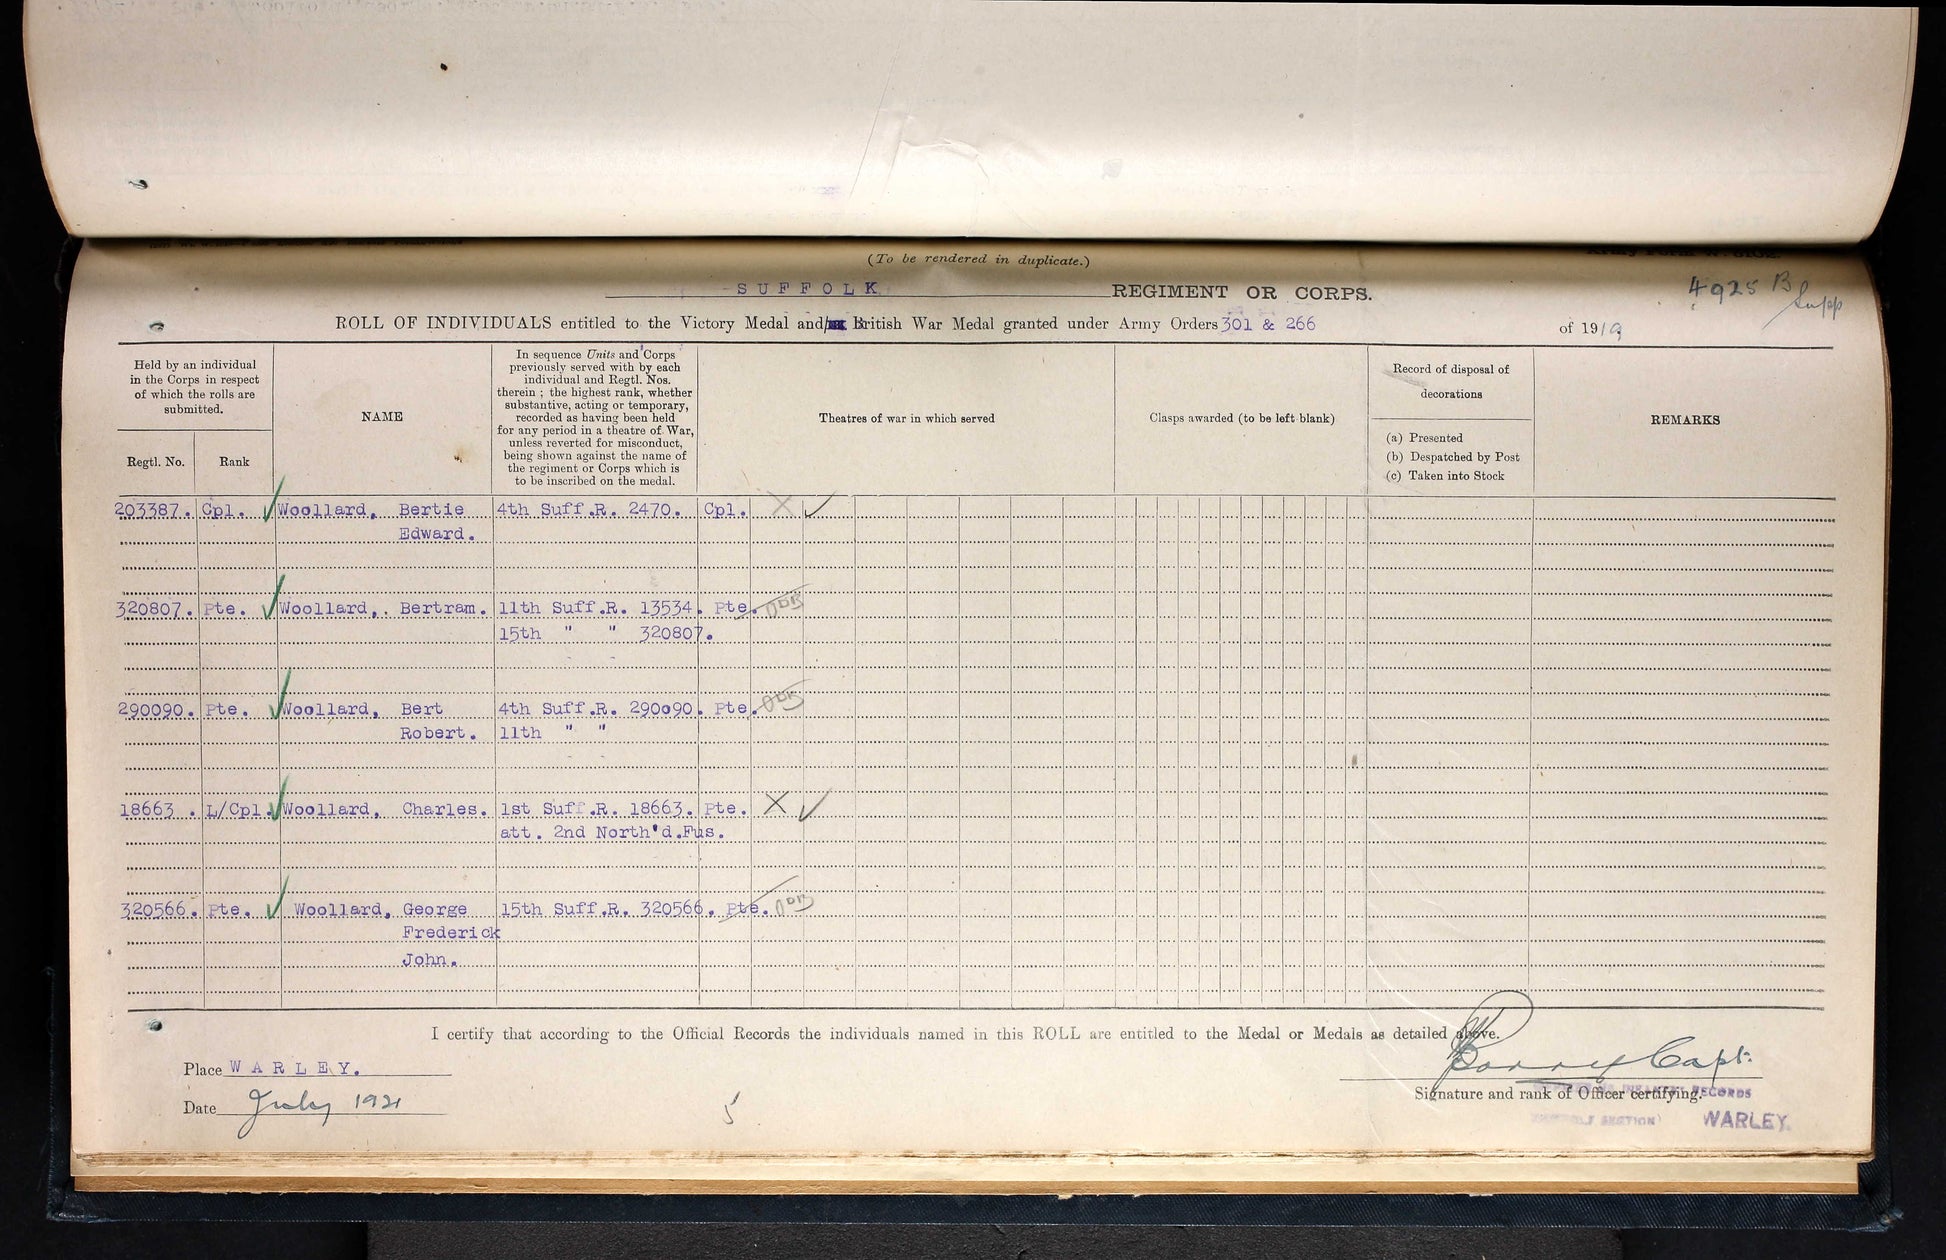 (To be rendered in duplicate.)
SUFFOLK REGIMENT OR CORPS.
4925 B
Supp
ROLL OF INDIVIDUALS entitled to the Victory Medal and/ British War Medal granted under Army Orders 301 & 266 of 1919
Held by an individual
in the Corps in respect
of which the rolls are
submitted.
Regtl. No.
Rank
NAME
In sequence Units and Corps
previously served with by each
individual and Regtl. Nos.
therein ; the highest rank, whether
substantive, acting or temporary,
recorded as having been held
for any period in a theatre of War,
unless reverted for misconduct,
being shown against the name of
the regiment or Corps which is
to be inscribed on the medal.
Theatres of war in which served
Clasps awarded (to be left blank)
Record of disposal of
decorations
(a) Presented
(b) Despatched by Post
(c) Taken into Stock
REMARKS
203387. Cpl. ✓ Woollard, Bertie 4th Suff.R. 2470. Cpl. X ✓
Edward.
320807. Pte. ✓ Woollard,. Bertram. 11th Suff.R. 13534. Pte.
15th " " 320807.
290090. Pte. ✓ Woollard, Bert 4th Suff.R. 290090. Pte.
Robert. 11th " "
18663 . L/Cpl. ✓ Woollard, Charles. 1st Suff.R. 18663. Pte. X ✓
att. 2nd North'd.Fus.
320566. Pte. ✓ Woollard, George 15th Suff.R. 320566. Pte.
Frederick
John.
I certify that according to the Official Records the individuals named in this ROLL are entitled to the Medal or Medals as detailed above.
Place WARLEY.
Date July 1921
5
Capt.
Signature and rank of Officer certifying.
RECORDS
SECTION)
WARLEY.